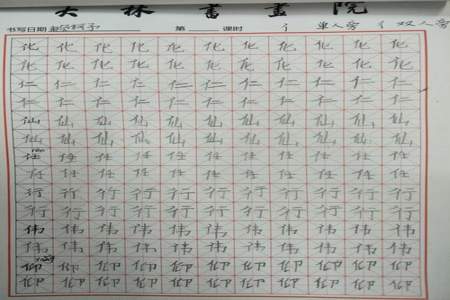 大林書畫院
书写日期 第 课时 亻 單人旁 彳 双人旁
化 化 化 化 化 化 化 化 化 化 化
化 化 化 化 化 化 化 化 化 化 化
仁 仁 仁 仁 仁 仁 仁 仁 仁 仁 仁
仁 仁 仁 仁 仁 仁 仁 仁 仁 仁 仁
仙 仙 仙 仙 仙 仙 仙 仙 仙 仙 仙
仙 仙 仙 仙 仙 仙 仙 仙 仙 仙 仙
任 任 任 任 任 任 任 任 任 任 任
任 任 任 任 任 任 任 任 任 任 任
行 行 行 行 行 行 行 行 行 行 行
行 行 行 行 行 行 行 行 行 行 行
伟 伟 伟 伟 伟 伟 伟 伟 伟 伟 伟
伟 伟 伟 伟 伟 伟 伟 伟 伟 伟 伟
仰 仰 仰 仰 仰 仰 仰 仰 仰 仰 仰
仰 仰 仰 仰 仰 仰 仰 仰 仰 仰 仰